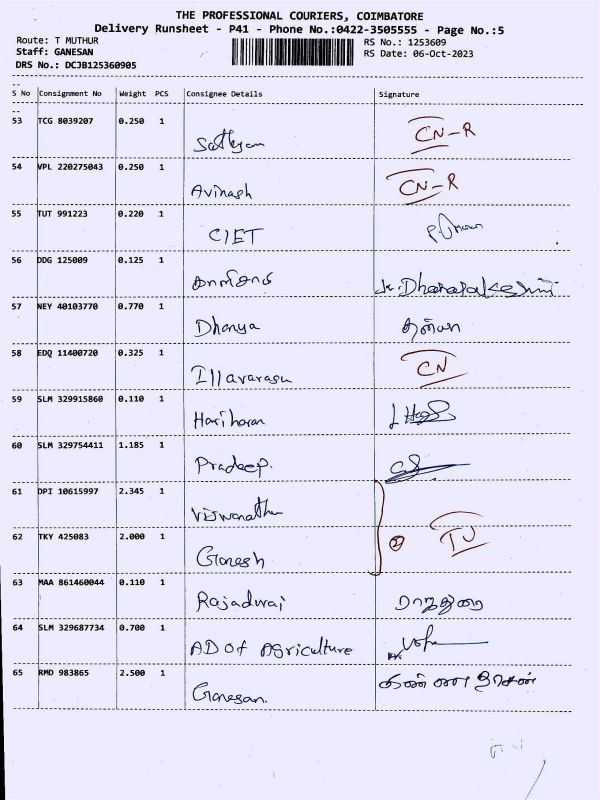 THE PROFESSIONAL COURIERS, COIMBATORE
Delivery Runsheet - P41 - Phone No.:0422-3505555 - Page No.:5
Route: T MUTHUR RS No.: 1253609
Staff: GANESAN RS Date: 06-Oct-2023
DRS No.: DCJB125360905
S No Consignment No Weight PCS Consignee Details Signature
53 TCG 8039207 0.250 1 Sathyam CN-R
54 VPL 220275043 0.250 1 Avinash CN-R
55 TUT 991223 0.220 1 CIET
56 DDG 125009 0.125 1
57 NEY 40103770 0.770 1 Dhanya தன்யா
58 EDQ 11400720 0.325 1 Illavarasu CN
59 SLM 329915860 0.110 1 Hariharan
60 SLM 329754411 1.185 1 Pradeep.
61 DPI 10615997 2.345 1 Viswanathan
62 TKY 425083 2.000 1 Ganesh 2 TJ
63 MAA 861460044 0.110 1 Rajadurai ராஜதுரை
64 SLM 329687734 0.700 1 AD of Agriculture
65 RMD 983865 2.500 1 Ganesan.